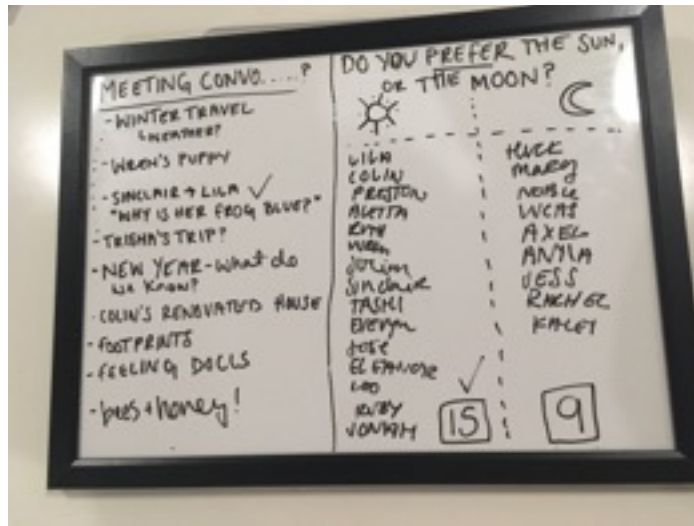 MEETING CONVO.....?
- WINTER TRAVEL
& WEATHER?
- WREN'S PUPPY
- SINCLAIR + LILA ✓
"WHY IS HER FROG BLUE?"
- TRISHA'S TRIP?
- NEW YEAR - What do
we know?
- COLIN'S RENOVATED HOUSE
- FOOTPRINTS
- FEELING DOLLS
- bees + honey!
DO YOU PREFER THE SUN,
OR THE MOON?
LILA
COLIN
PRESTON
ALETTA
WREN
Sinclair
TASHI
Evelyn
JOSE
ELEANORE
LEO
RUBY
15
HUCK
MARY
NOBLE
LUCAS
AXEL
ANYLA
JESS
RACHEL
KALEY
9